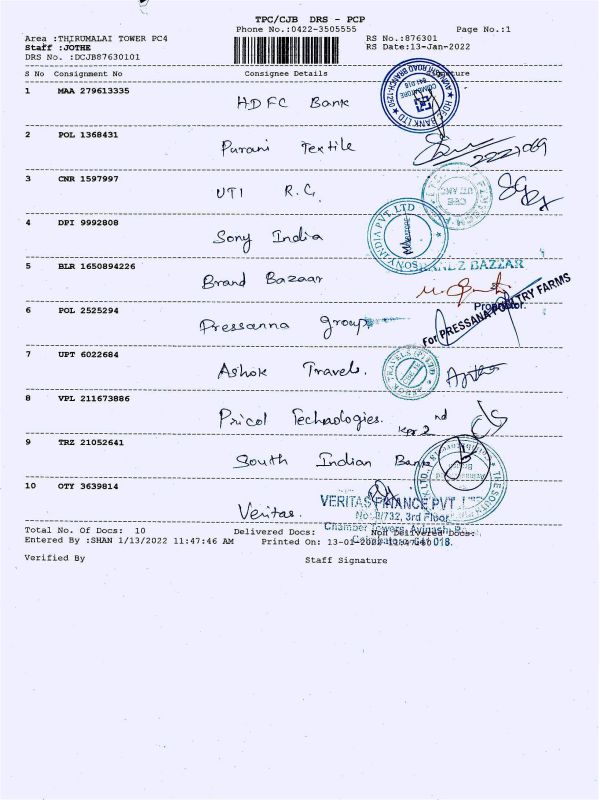 TPC/CJB DRS - PCP
Phone No.:0422-3505555 Page No.:1
Area :THIRUMALAI TOWER PC4 RS No.:876301
Staff :JOTHE RS Date:13-Jan-2022
DRS No. :DCJB87630101
S No Consignment No Consignee Details Signature
1 MAA 279613335 HDFC Bank
HDFC BANK LTD
AVINASHI ROAD BRANCH-1290
COIMBATORE
641 018
2 POL 1368431 Purani Textile
3 CNR 1597997 UTI R.C.
4 DPI 9992808 Sony India
SONY INDIA PVT. LTD
5 BLR 1650894226 Brand Bazaar
BRANDZ BAZZAR
Proprietor.
6 POL 2525294 Pressanna group
For PRESSANA POULTRY FARMS
7 UPT 6022684 Ashok Travels.
ASHOK TRAVELS (P) LTD
8 VPL 211673886 Pricol Technologies. 2nd
9 TRZ 21052641 South Indian Bank
10 OTY 3639814 Veritas.
VERITAS FINANCE PVT. LTD
No:8/732, 3rd Floor
Chamber Towers, Avinashi
Coimbatore-641 018.
Total No. Of Docs: 10 Delivered Docs: Non Delivered Docs:
Entered By :SHAN 1/13/2022 11:47:46 AM Printed On: 13-01-2022 11:47:46
Verified By Staff Signature